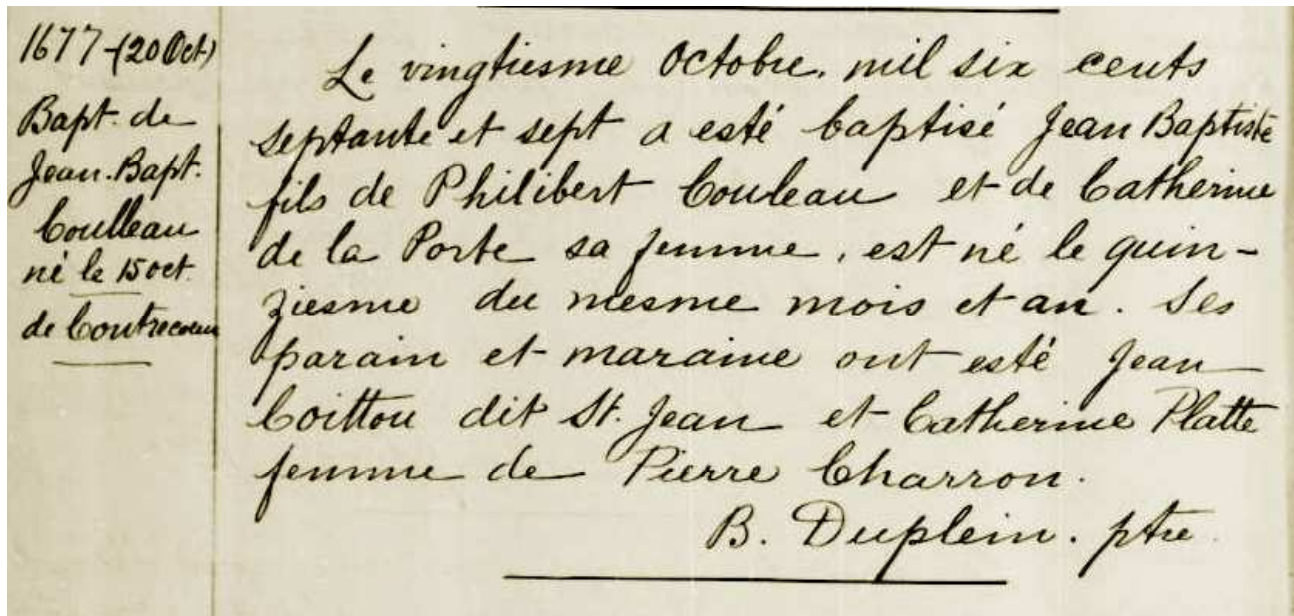 1677-(20 Oct)
Bapt. de
Jean-Bapt.
Coulleau
né le 15 oct.
de Contrecoeur
Le vingtiesme Octobre, mil six cents
septante et sept a esté baptisé Jean Baptiste
fils de Philibert Couleau et de Catherine
de la Porte sa femme, est né le quin-
ziesme du mesme mois et an. Ses
parain et maraine ont esté Jean
Coittou dit St. Jean et Catherine Platte
femme de Pierre Charron.
B. Duplein. ptre